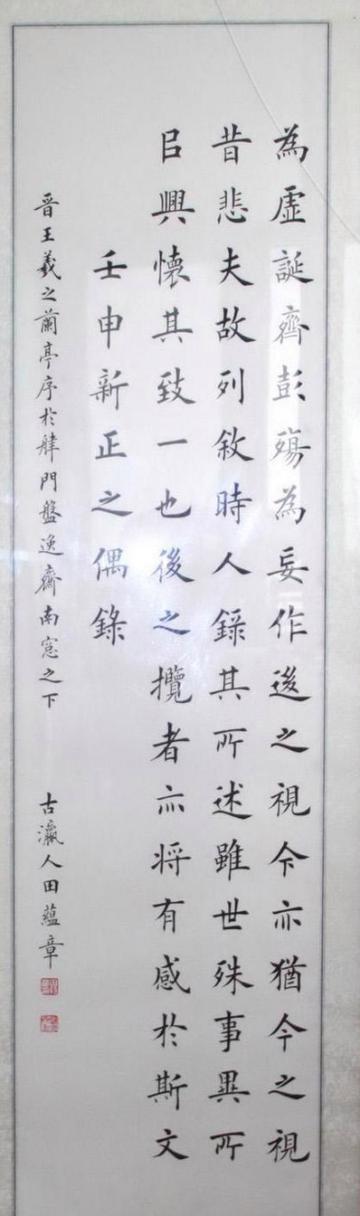 為虛誕齊彭殤為妄作後之視今亦猶今之視
昔悲夫故列敘時人錄其所述雖世殊事異所
㠯興懷其致一也後之攬者亦将有感於斯文
壬申新正之偶錄
晋王羲之蘭亭序於肆門盤逸齋南窓之下
古瀛人田蘊章